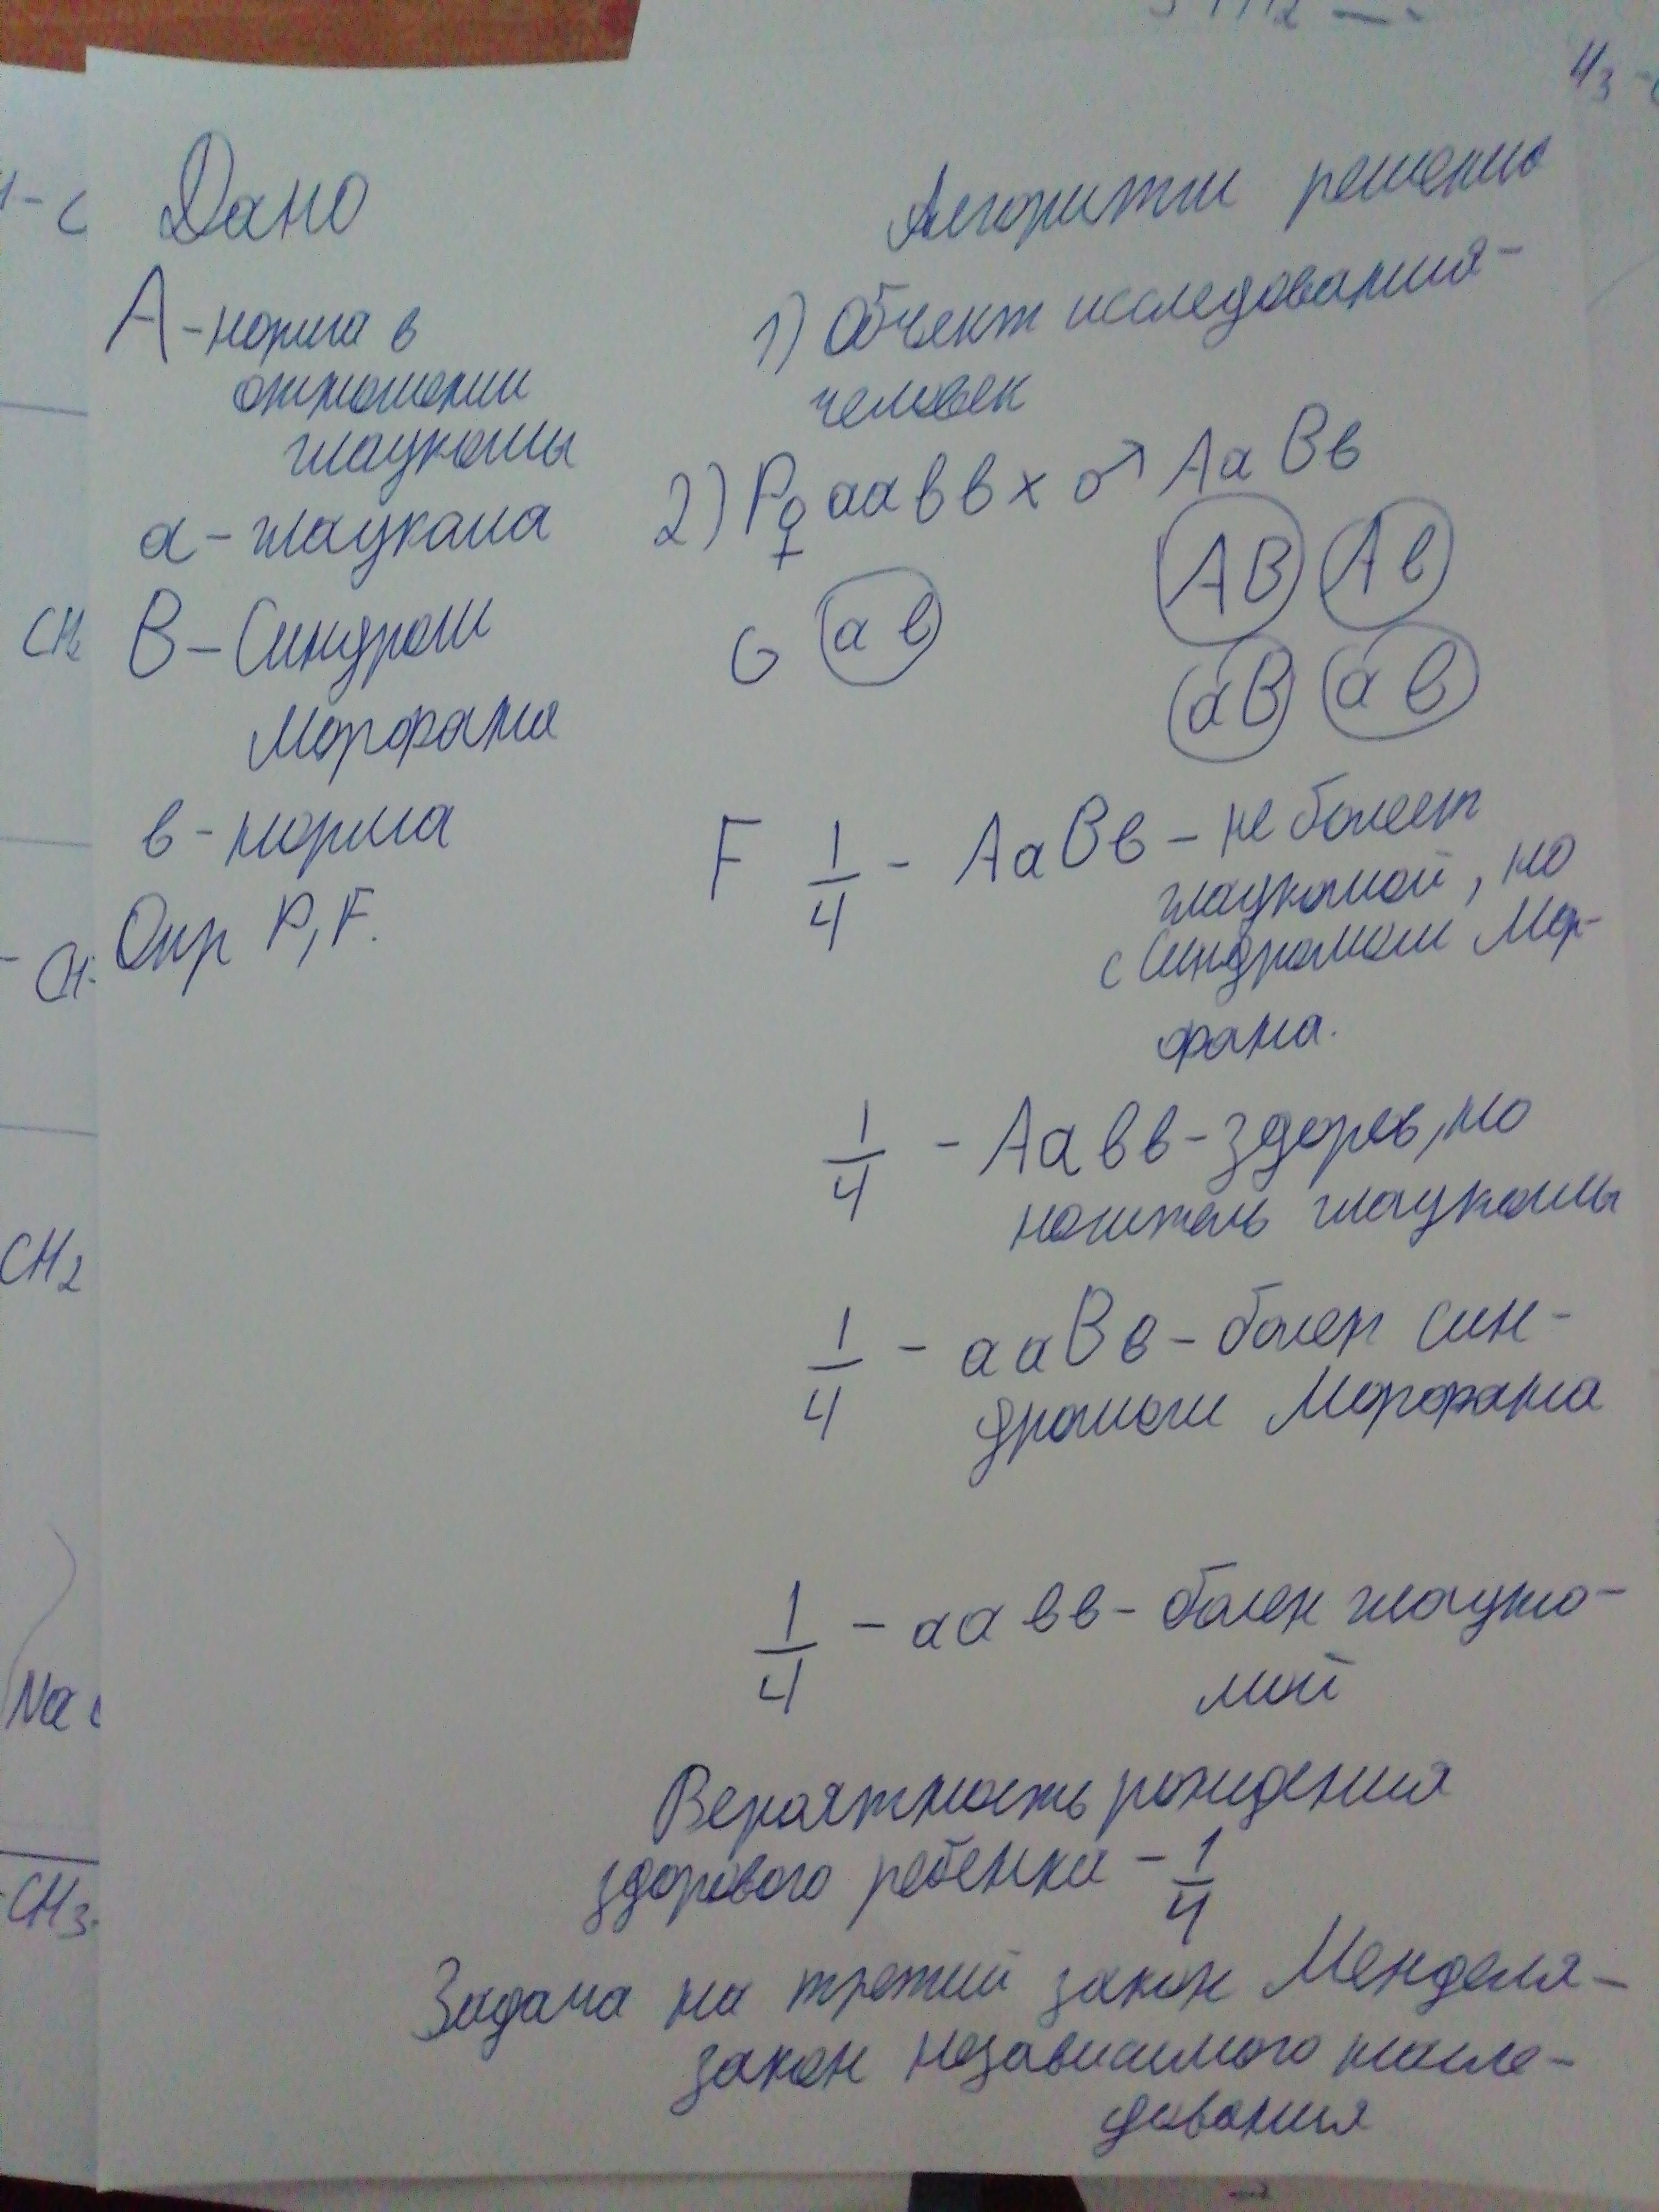 Дано
А - норма в
отношении
глаукомы
а - глаукома
В - Синдром
Морфана
в - норма
Опр P, F.
Алгоритм решения
1) Объект исследования -
человек
2) P ♀ аавв х ♂ АаВв
G ав АВ Ав
аВ ав
F 1/4 - АаВв - не болеет
глаукомой, но
с Синдромом Мор-
фана.
1/4 - Аавв - здоров, но
носитель глаукомы
1/4 - ааВв - болен син-
дромом Морфана
1/4 - аавв - болен глауко-
мой
Вероятность рождения
здорового ребенка - 1/4
Задача на третий закон Менделя -
закон независимого насле-
дования
CH2
CH2
Na
CH3